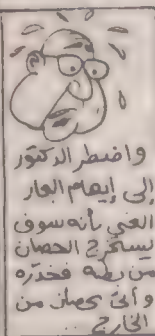 واضطر الدكتور
إلى إيهام العار
الغني بأنه سوف
يستخرج الحصان
من بطنه فخدّره
وأتى بحصان من
الخارج ..